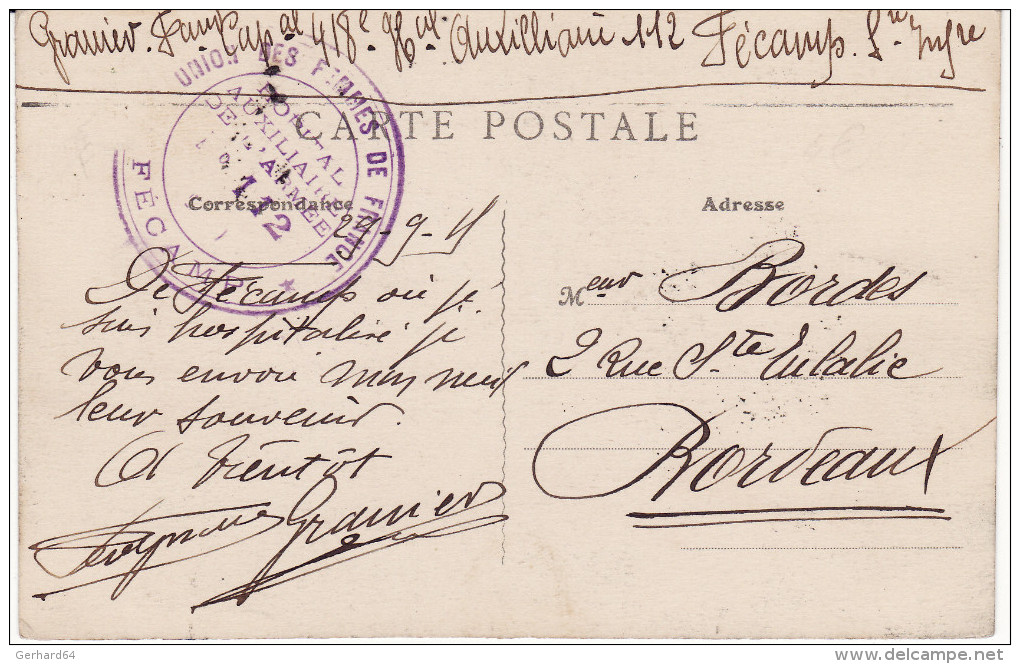 Granier. Cap^al 418e H^al Auxilliaire 112 Fécamp. S^ne Inf^re
CARTE POSTALE
UNION DES FEMMES DE FRANCE
HOPITAL
AUXILIAIRE
DE L'ARMÉE
112
FÉCAMP
Correspondance
29-9-15
De Fécamp où je
suis hospitalisé je
vous envoie mon meil
leur souvenir.
A bientôt
Granier
Adresse
Meur Bordes
2 Rue Ste Eulalie
Bordeaux
Gerhard64
delcampe.net